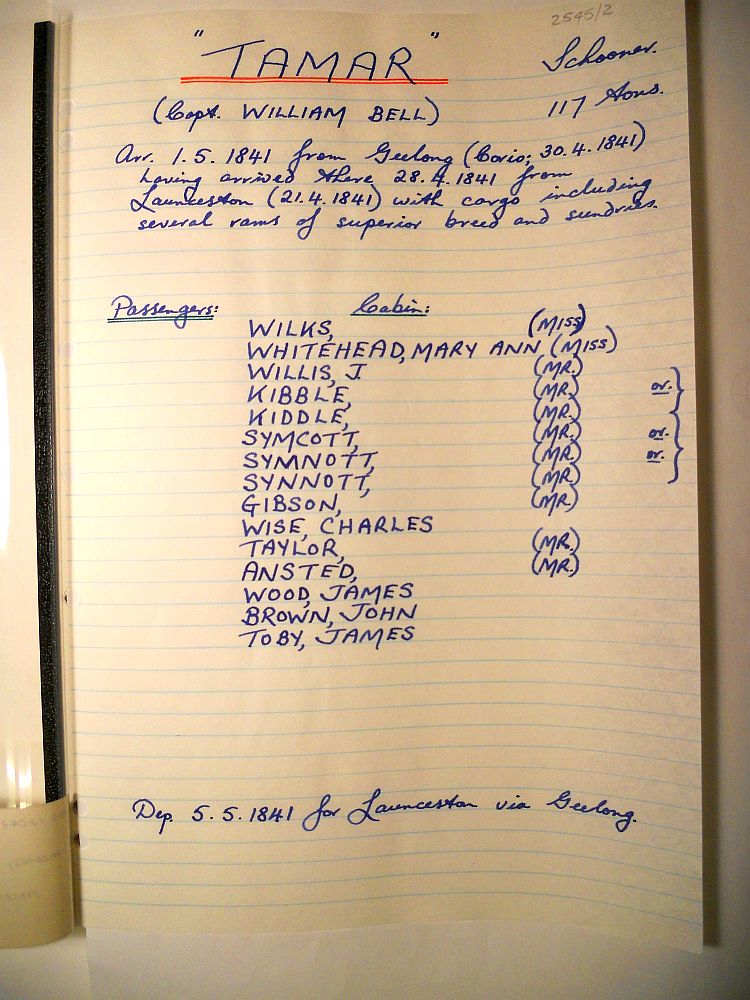 2545/2
"TAMAR" Schooner.
(Capt. WILLIAM BELL) 117 tons.
Arr. 1.5.1841 from Geelong (Corio; 30.4.1841)
having arrived there 28.4.1841 from
Launceston (21.4.1841) with cargo including
several rams of superior breed and sundries.
Passengers: Cabin:
WILKS, (MISS)
WHITEHEAD, MARY ANN (MISS)
WILLIS, J. (MR.)
KIBBLE, (MR.) or.
KIDDLE, (MR.)
SYMCOTT, (MR.) or.
SYMNOTT, (MR.) or.
SYNNOTT, (MR.)
GIBSON, (MR.)
WISE, CHARLES
TAYLOR, (MR.)
ANSTED, (MR.)
WOOD, JAMES
BROWN, JOHN
TOBY, JAMES
Dep. 5.5.1841 for Launceston via Geelong.